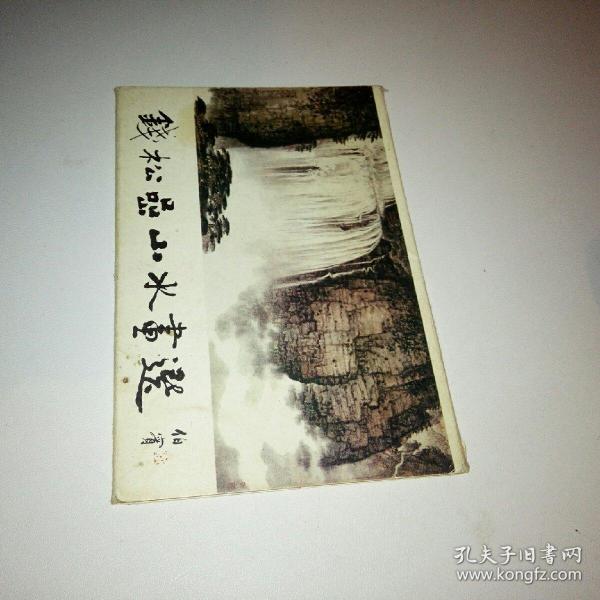 錢松嵒山水畫選
伯賓
孔夫子旧書网
www.kongfz.com